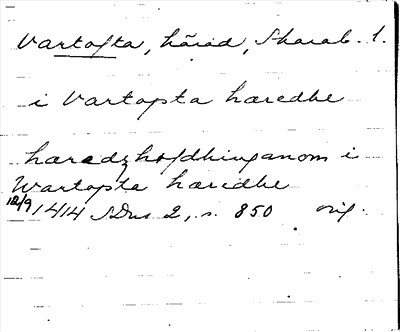 Vartofta, härad, Skarab. l.
i Vartopsta hæredhe
haredzhofdhinganom i
Wartopsta hæridhe
12/9 1414 SDns 2, s. 850 orig.